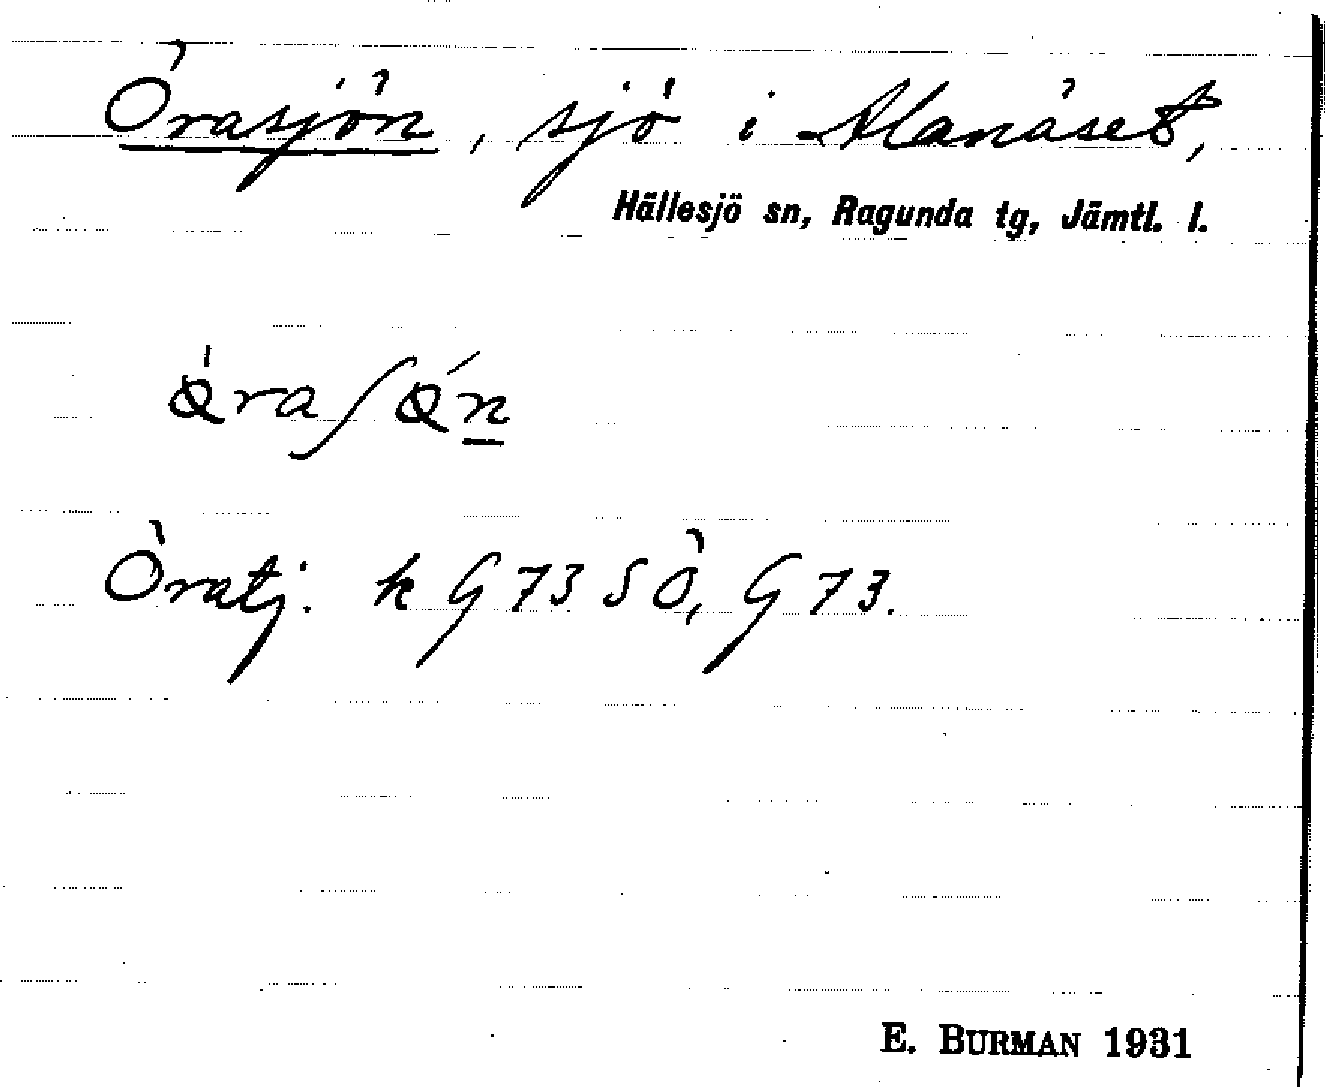 Örasjön, sjö i Alanäset,
Hällesjö sn, Ragunda tg, Jämtl. l.
Öratj. k G 73 S Ö, G 73.
E. BURMAN 1931